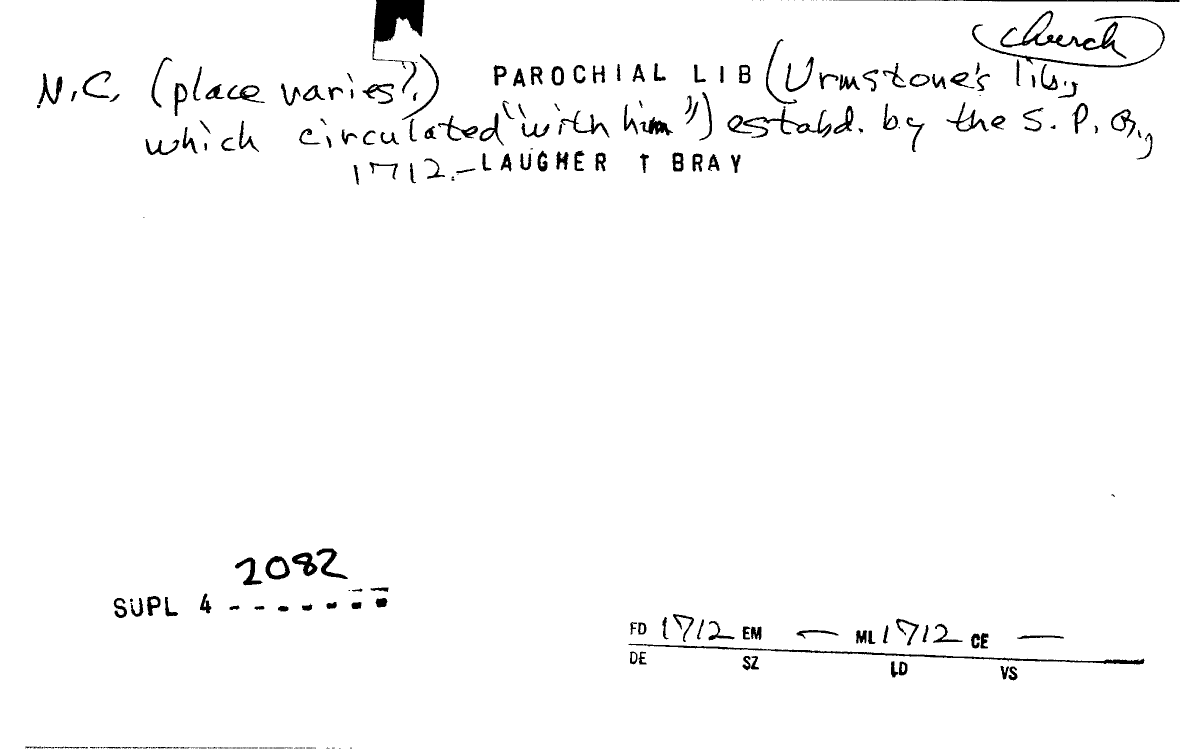 church
N.C. (place varies?) PAROCHIAL LIB (Urmstone's lib.,
which circulated "with him") estabd. by the S. P. G.,
1712.-LAUGHER T BRAY
2082
SUPL 4 - - - - - - -
FD 1712 EM — ML 1712 CE —
DE SZ LD VS